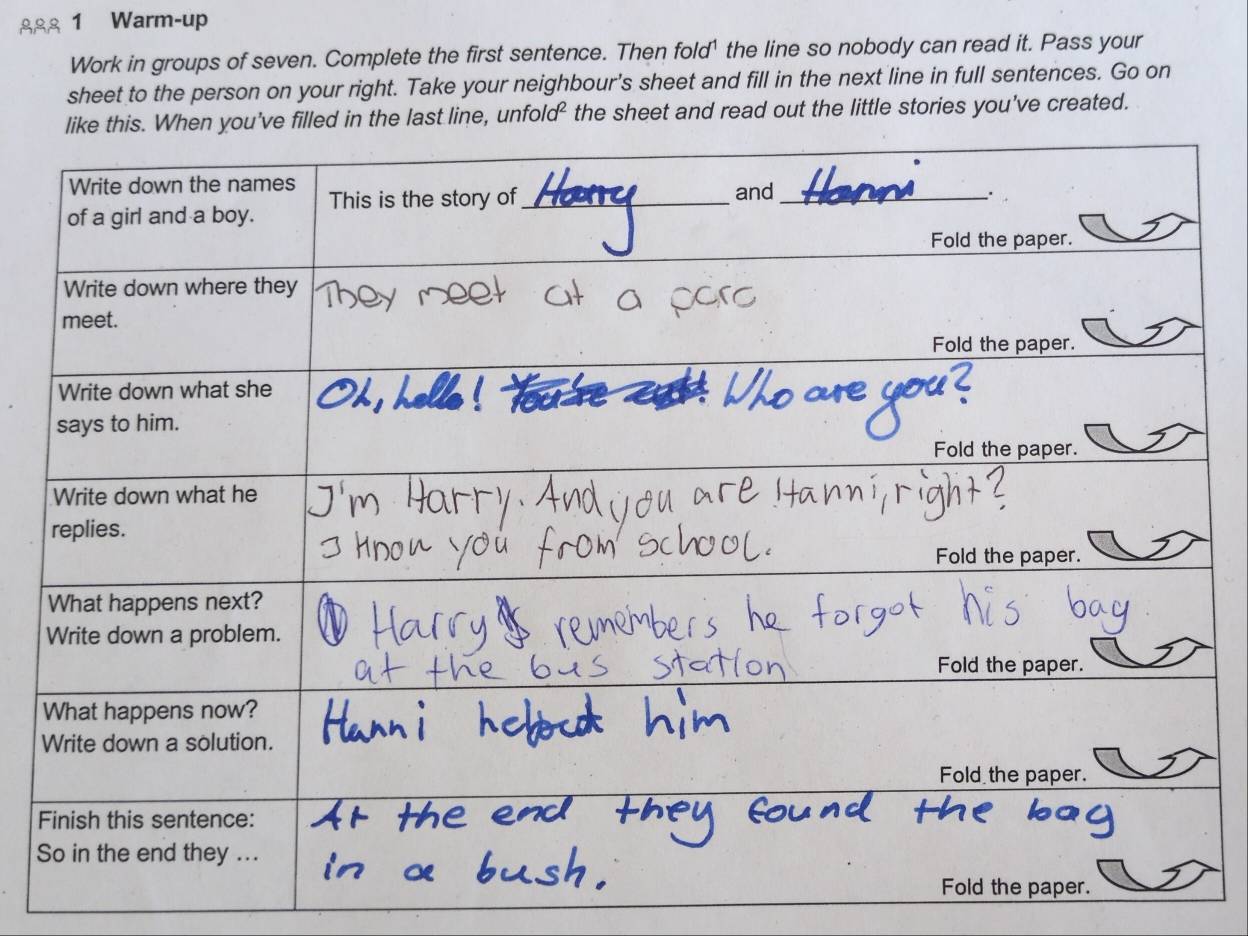 1 Warm-up
Work in groups of seven. Complete the first sentence. Then fold¹ the line so nobody can read it. Pass your
sheet to the person on your right. Take your neighbour's sheet and fill in the next line in full sentences. Go on
like this. When you've filled in the last line, unfold² the sheet and read out the little stories you've created.
Write down the names
of a girl and a boy.
This is the story of Harry and Hanni.
Fold the paper.
Write down where they
meet.
They meet at a parc
Fold the paper.
Write down what she
says to him.
Oh, hello! Who are you?
Fold the paper.
Write down what he
replies.
I'm Harry. And you are Hanni, right?
I know you from school.
Fold the paper.
What happens next?
Write down a problem.
Harry remembers he forgot his bag
at the bus station
Fold the paper.
What happens now?
Write down a solution.
Hanni him
Fold the paper.
Finish this sentence:
So in the end they ...
At the end they found the bag
in a bush.
Fold the paper.